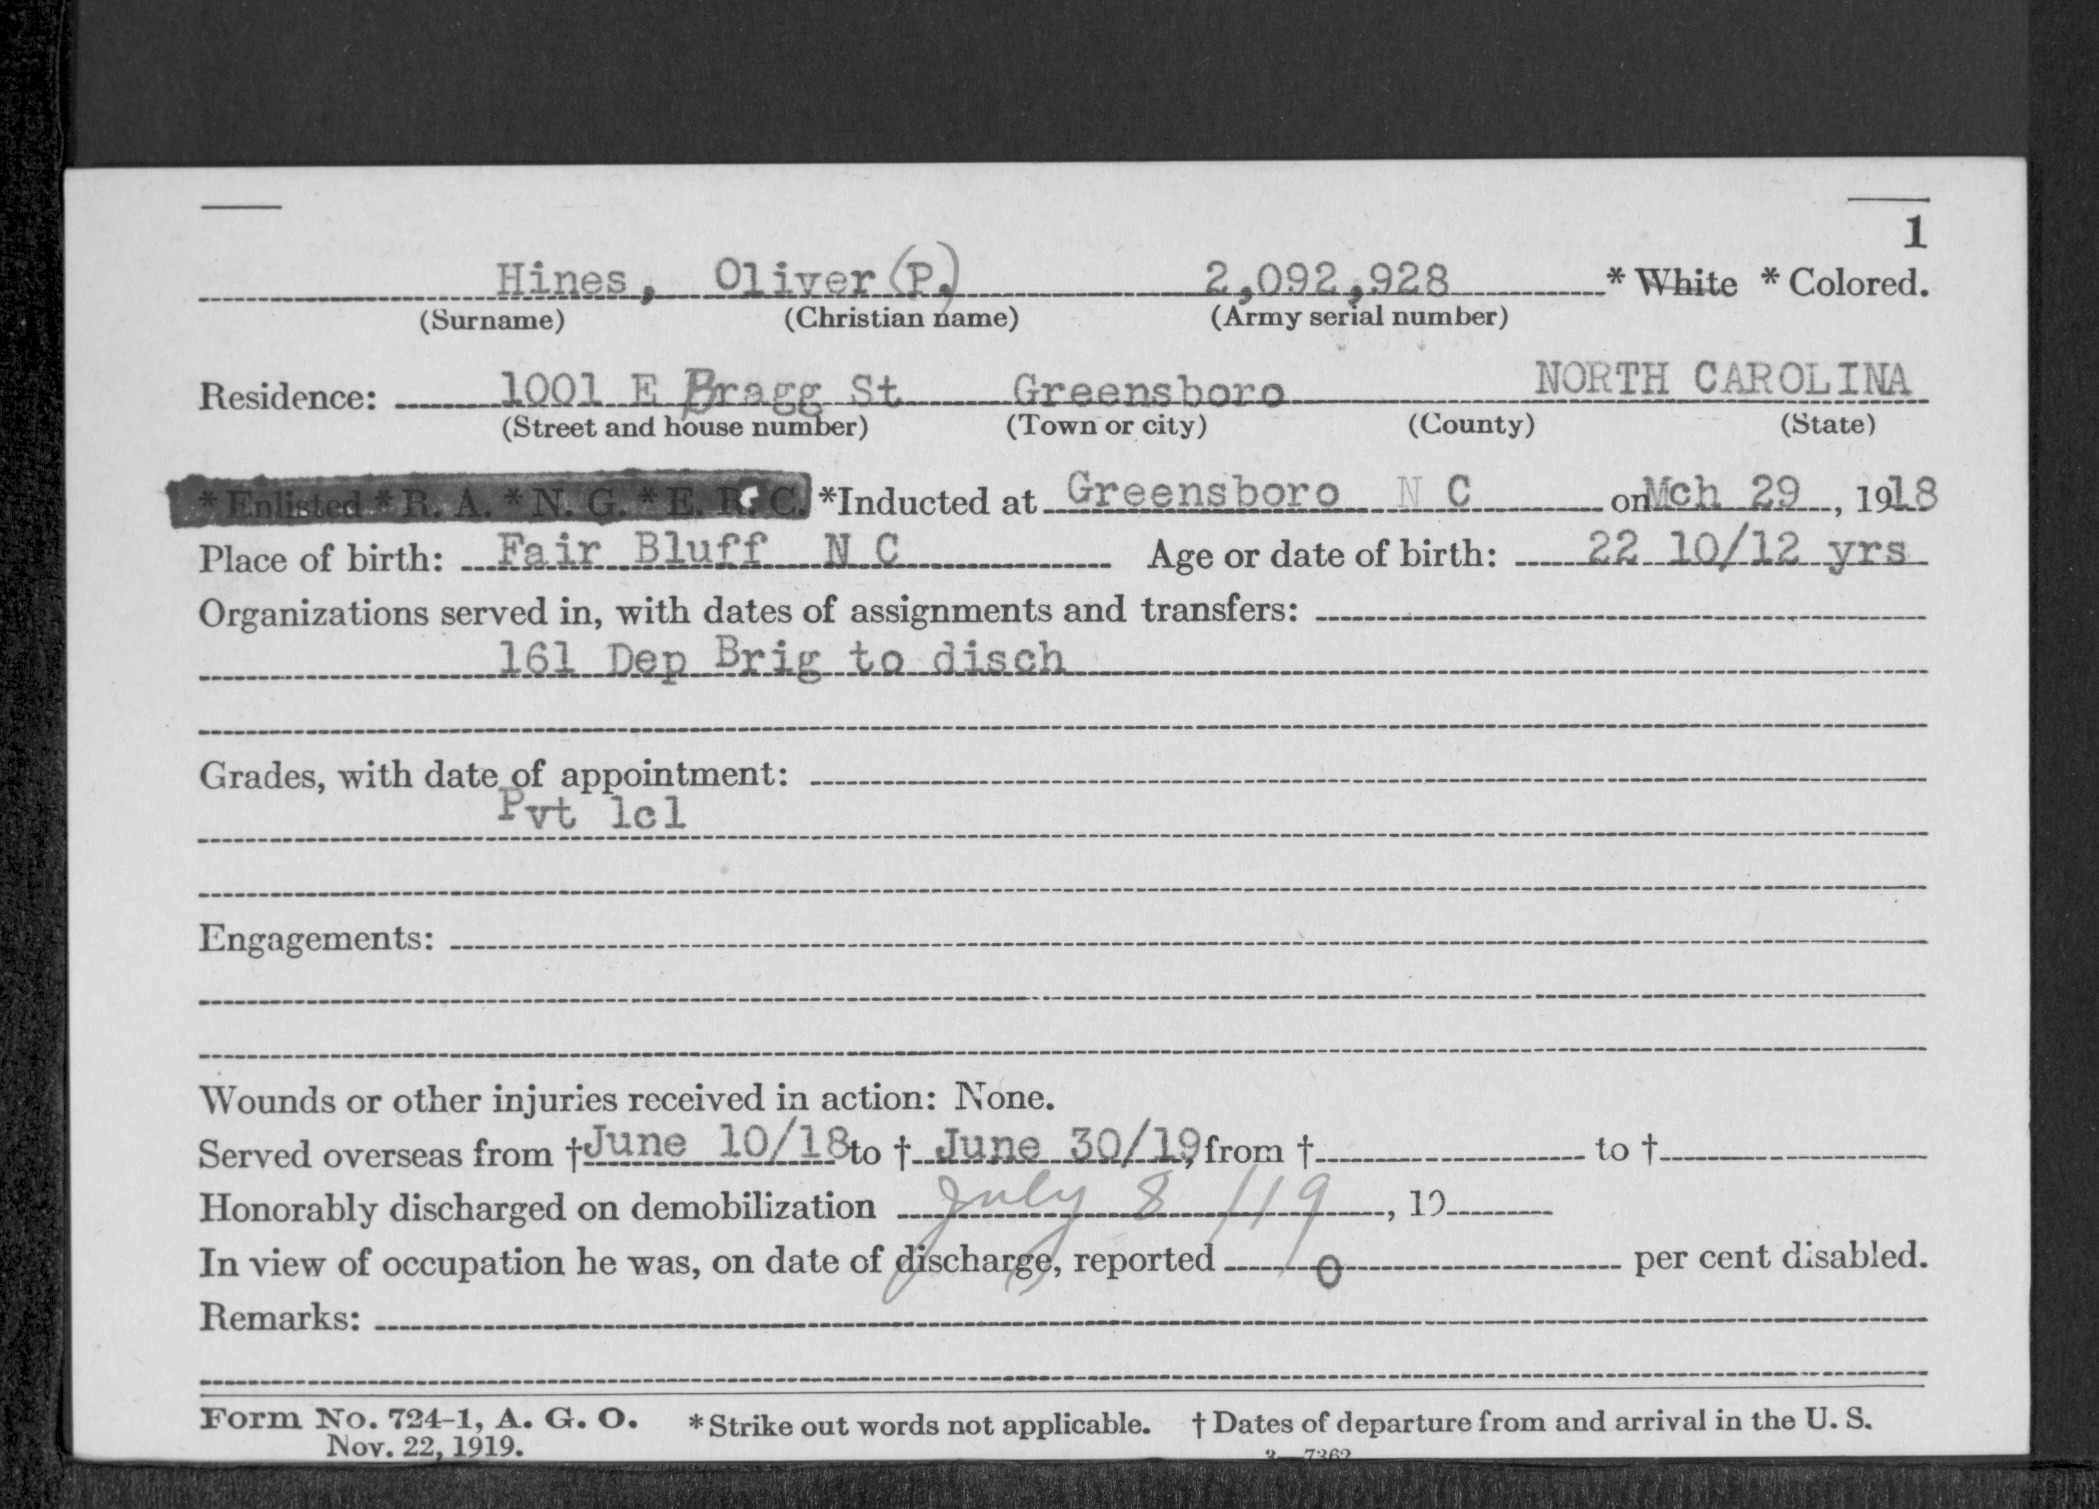 1
Hines, Oliver (P.) 2,092,928 * White * Colored.
(Surname) (Christian name) (Army serial number)
Residence: 1001 E Bragg St Greensboro NORTH CAROLINA
(Street and house number) (Town or city) (County) (State)
* Enlisted * R. A. * N. G. * E. R. C. *Inducted at Greensboro N C on Mch 29, 1918
Place of birth: Fair Bluff N C Age or date of birth: 22 10/12 yrs
Organizations served in, with dates of assignments and transfers:
161 Dep Brig to disch
Grades, with date of appointment:
Pvt 1cl
Engagements:
Wounds or other injuries received in action: None.
Served overseas from † June 10/18 to † June 30/19, from † to †
Honorably discharged on demobilization July 8/19, 19
In view of occupation he was, on date of discharge, reported 0 per cent disabled.
Remarks:
Form No. 724-1, A. G. O. * Strike out words not applicable. † Dates of departure from and arrival in the U. S.
Nov. 22, 1919. 3—7362